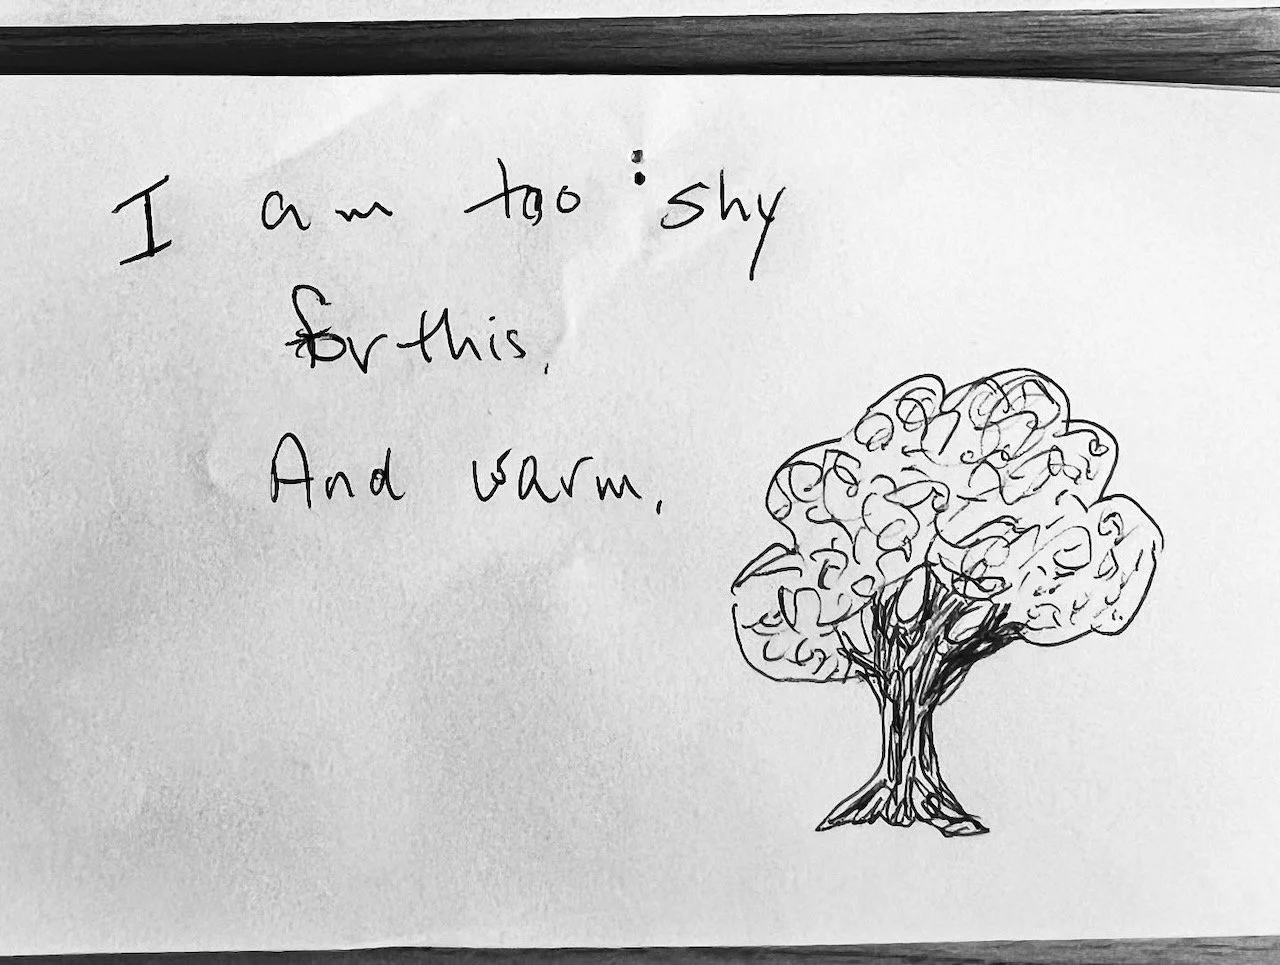 I am too : shy
for this.
And warm.